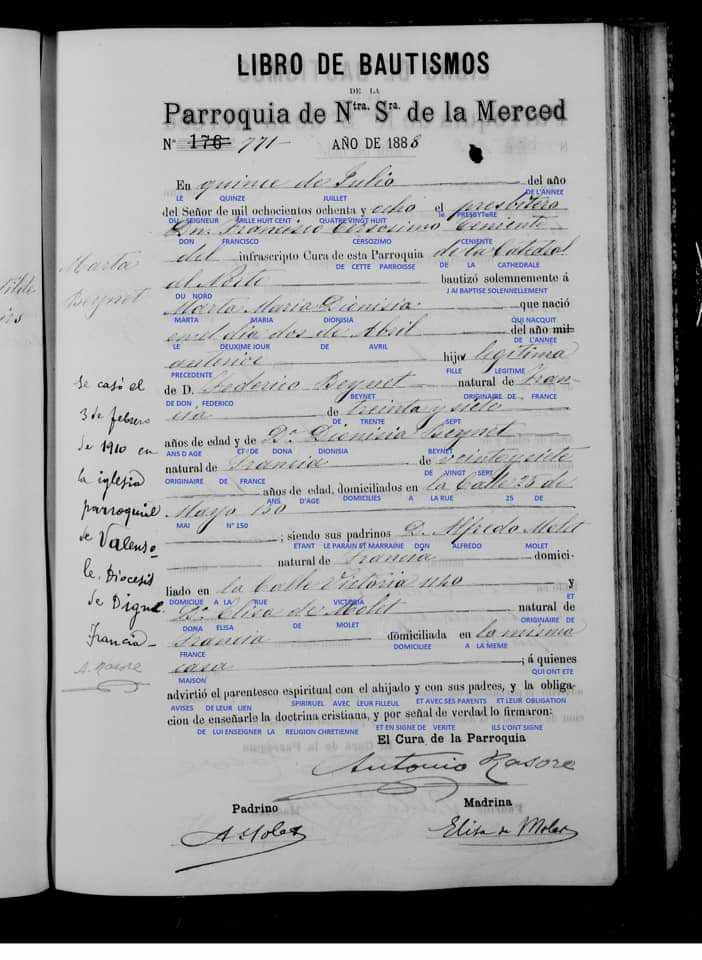 LIBRO DE BAUTISMOS
DE LA
Parroquia de Ntra. Sra. de la Merced
Nº 176 771 AÑO DE 1888
En quince de Julio del año
LE QUINZE JUILLET DE L'ANNEE
del Señor de mil ochocientos ochenta y ocho el presbitero
DU SEIGNEUR MILLE HUIT CENT QUATRE VINGT HUIT le PRESBYTeRE
Dn. Francisco Cersosimo Ceniente
DON FRANCISCO CERSOZIMO CENIENTE
del infrascripto Cura de esta Parroquia de la Catedral
DE CETTE PARROISSE DE LA CATHEDRALE
al Norte bautizó solemnemente á
DU NORD J AI BAPTISE SOLENNELLEMENT
Marta Maria Dionisia que nació
MARTA MARIA DIONISIA QUI NACQUIT
en el dia dos de Abril del año mil
LE DEUXIME JOUR DE AVRIL DE L'ANNEE
anterior hija legitima
PRECEDENTE FILLE LEGITIME
de D. Federico Beynet natural de Fran-
DE DON FEDERICO BEYNET ORIGINAIRE DE FRANCE
cia de treinta y siete
DE TRENTE SEPT
años de edad y de Da. Dionisia Beynet
ANS D AGE ET DE DONA DIONISIA BEYNET
natural de Francia de veintisiete
ORIGINAIRE DE FRANCE DE VINGT SEPT
años de edad, domiciliados en la Calle 25 de
ANS D'AGE DOMICILIES A LA RUE 25 DE
Mayo 150
MAI N° 150
; siendo sus padrinos D. Alfredo Molet
ETANT LE PARAIN ET MARRAINE DON ALFREDO MOLET
natural de Francia domici-
liado en la Calle Victoria y
DOMICILIE A LA RUE VICTORIA ET
Da. Elisa de Molet natural de
DONA ELISA DE MOLET ORIGINAIRE DE
Francia domiciliada en la misma
FRANCE DOMICILIEE A LA MEME
casa ; á quienes
MAISON QUI ONT ETE
advirtió el parentesco espiritual con el ahijado y con sus padres, y la obliga-
AVISES DE LEUR LIEN SPIRIRUEL AVEC LEUR FILLEUL ET AVEC SES PARENTS ET LEUR OBLIGATION
cion de enseñarle la doctrina cristiana, y por señal de verdad lo firmaron:
DE LUI ENSEIGNER LA RELIGION CHRETIENNE ET EN SIGNE DE VERITE ILS L'ONT SIGNE
El Cura de la Parroquia
Antonio Rasore
Padrino Madrina
A Molet Elisa de Molet
Marta
Beynet
Se casó el
3 de febrero
de 1910 en
la iglesia
parroquial
de Valenso
le. Diocesis
de Digne
Francia
A. Rasore